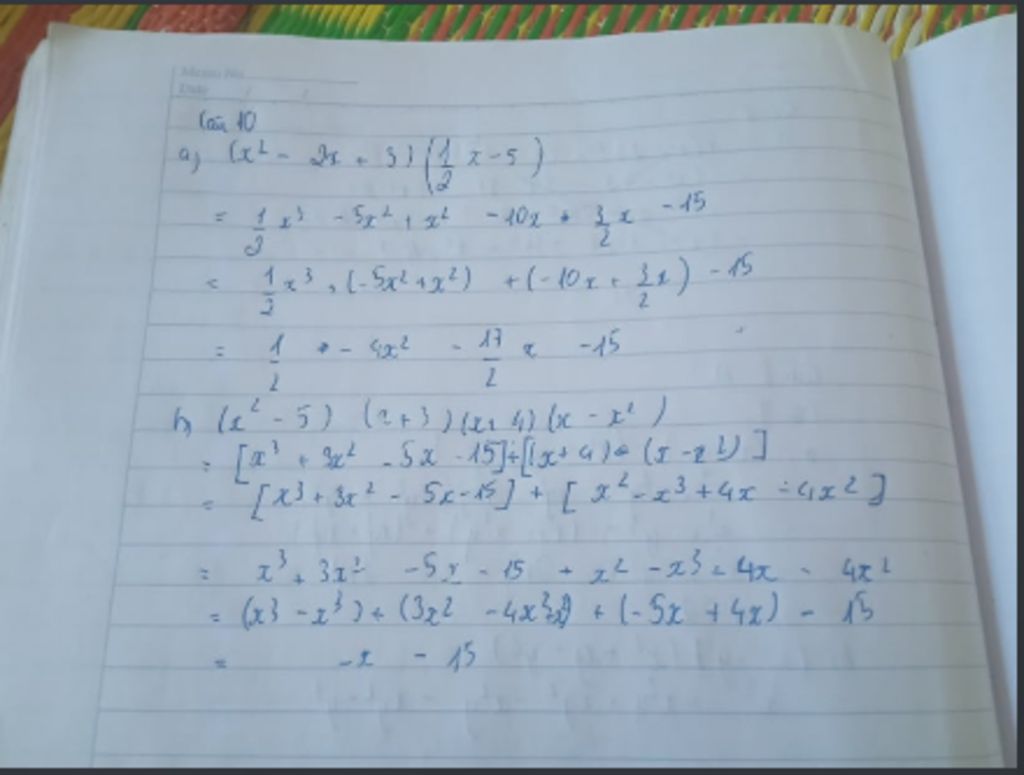 Memo No
Date / /
Câu 10
a) (x² - 2x + 3) (1/2 x - 5)
= 1/2 x³ - 5x² + x² - 10x + 3/2 x - 15
= 1/2 x³ + (-5x² + x²) + (-10x + 3/2 x) - 15
= 1/2 - 4x² - 17/2 x - 15
b) (x² - 5) (x + 3) (x + 4) (x - x²)
= [x³ + 3x² - 5x - 15] + [(x + 4) (x - x²)]
= [x³ + 3x² - 5x - 15] + [x² - x³ + 4x - 4x²]
= x³ + 3x² - 5x - 15 + x² - x³ + 4x - 4x²
= (x³ - x³) + (3x² - 4x² + x²) + (-5x + 4x) - 15
= -x - 15